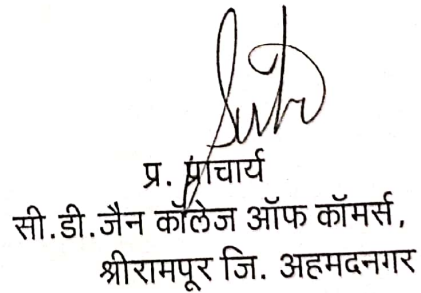 प्र. प्राचार्य
सी.डी.जैन कॉलेज ऑफ कॉमर्स,
श्रीरामपूर जि. अहमदनगर